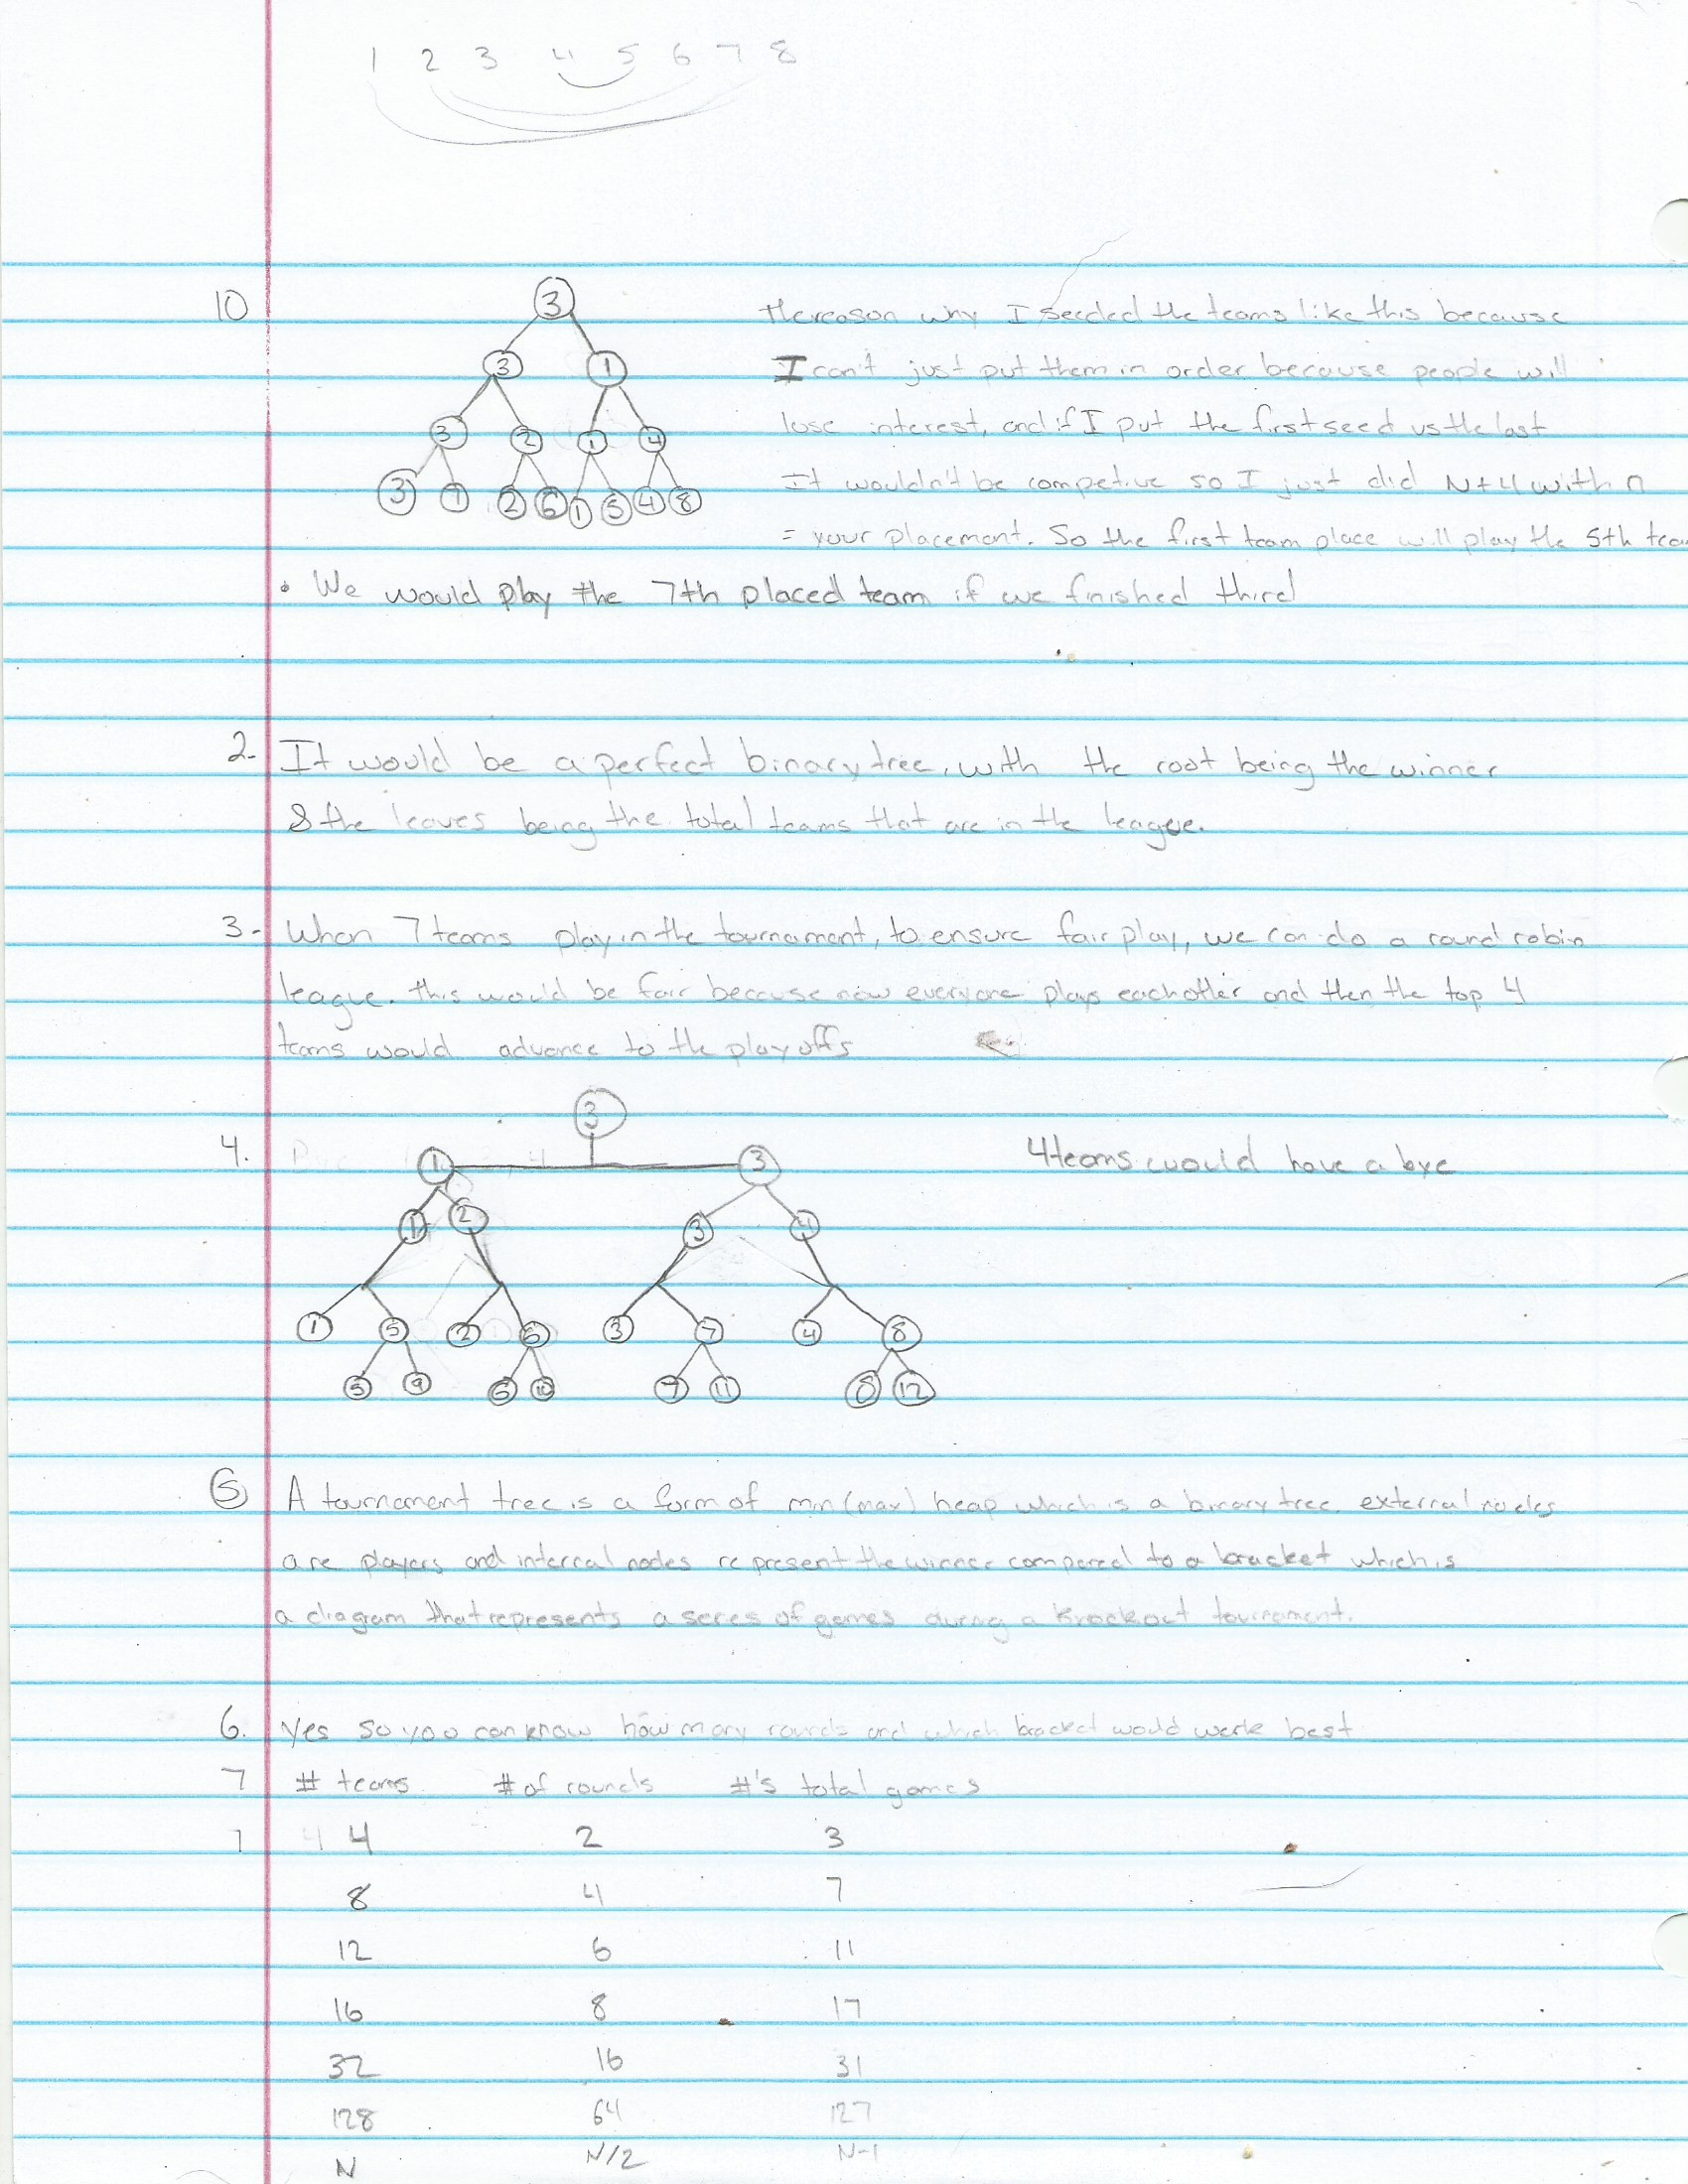 1 2 3 4 5 6 7 8
10
3
3 1
3 2 1 4
3 7 2 6 1 5 4 8
the reason why I seeded the teams like this because
I can't just put them in order because people will
lose interest, and if I put the first seed vs the last
It wouldn't be competive so I just did N+4 with n
= your placement. So the first team place will play the 5th team
• We would play the 7th placed team if we finished third
2. It would be a perfect binary tree, with the root being the winner
& the leaves being the total teams that are in the league.
3. When 7 teams play in the tournament, to ensure fair play, we can do a round robin
league. this would be fair because now everyone plays eachother and then the top 4
teams would advance to the playoffs
4.
3
1 3
1 2 3 4
1 5 2 6 3 7 4 8
5 9 6 10 7 11 8 12
4 teams would have a bye
5 A tournament tree is a form of min (max) heap which is a binary tree. external nodes
are players and internal nodes represent the winner compared to a bracket which is
a diagram that represents a seres of games during a knockout tournament.
6. Yes so you can know how many rounds and which bracket would work best
7 # teams # of rounds #'s total games
1 4 4 2 3
8 4 7
12 6 11
16 8 17
32 16 31
128 64 127
N N/2 N-1